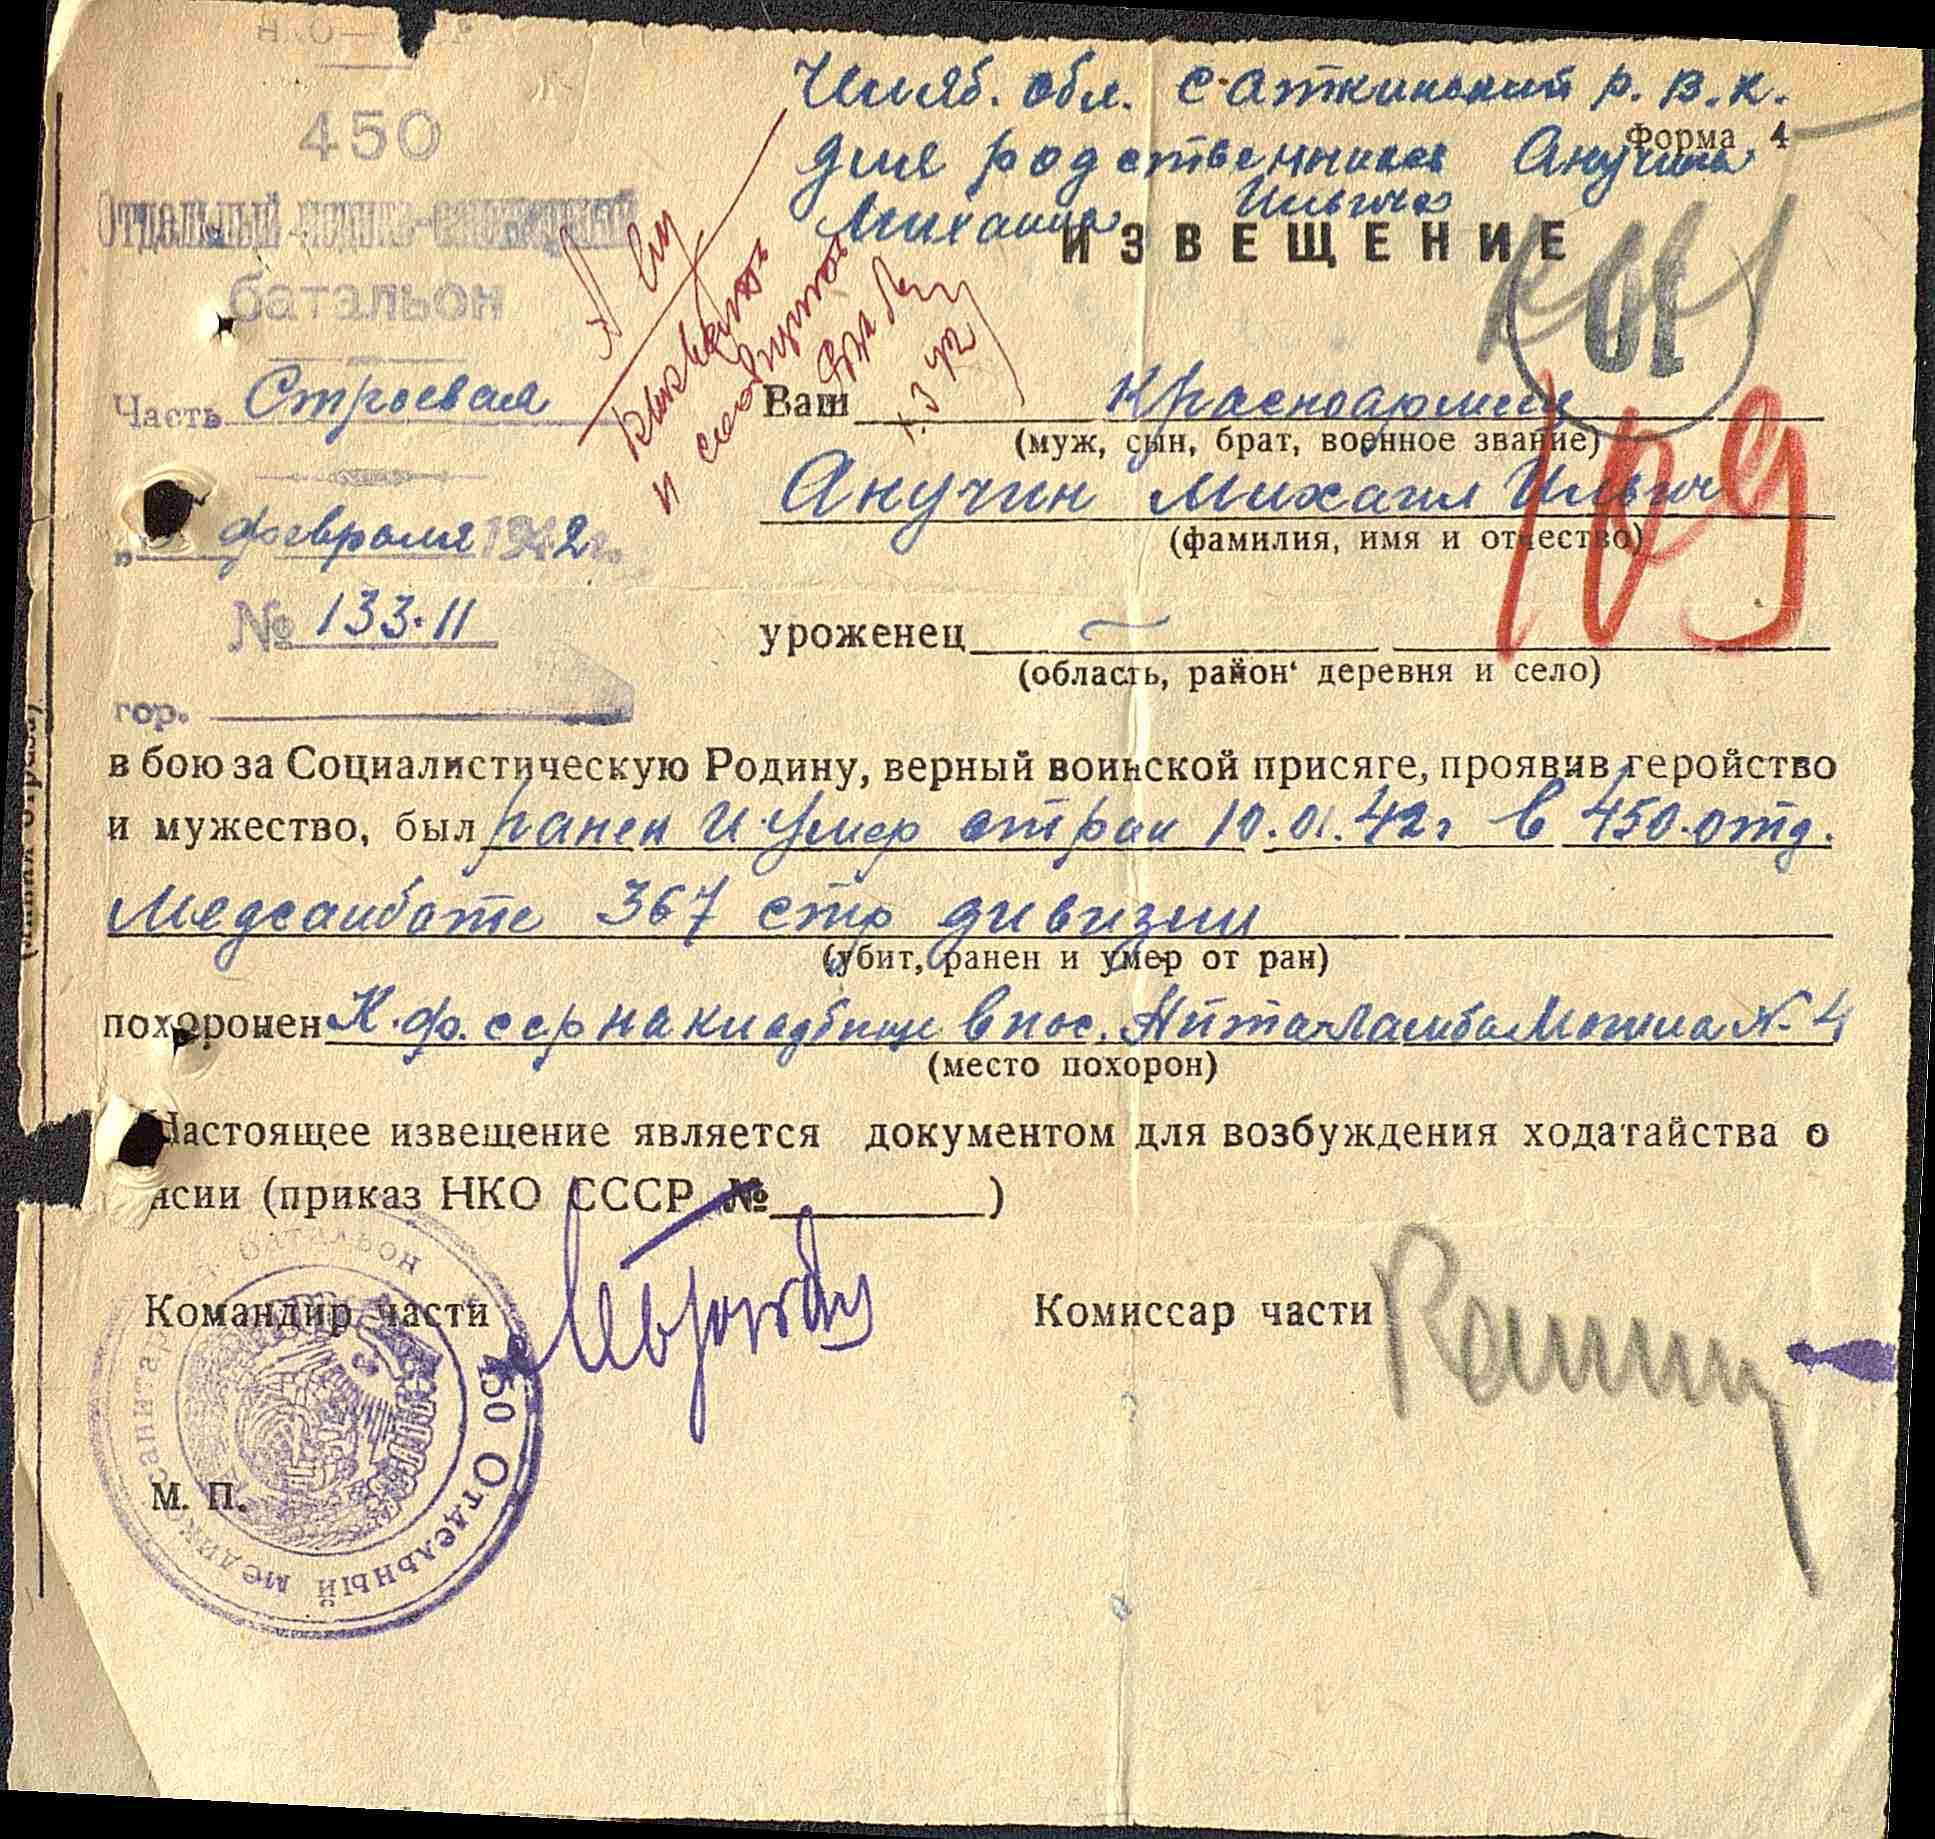 Челяб. обл. Саткинский р. в. к.
Форма 4
для родственников Анучина
Михаила Ильича
ИЗВЕЩЕНИЕ
450
Отдельный медико-санитарный
батальон
Часть Строевая
" февраля 1942 г.
№ 133.11
гор.
1.3 42
01
109
Ваш красноармеец
(муж, сын, брат, военное звание)
Анучин Михаил Ильич
(фамилия, имя и отчество)
уроженец
(область, район деревня и село)
в бою за Социалистическую Родину, верный воинской присяге, проявив геройство
и мужество, был ранен и умер от ран 10.01.42г в 450 отд.
Медсанбате 367 стр дивизии
(убит, ранен и умер от ран)
похоронен К.ф.сср на кладбище в пос. Айта-Ламба Могила N-4
(место похорон)
Настоящее извещение является документом для возбуждения ходатайства о
нсии (приказ НКО СССР № )
Командир части
Комиссар части
М. П.
450 Отдельный медико-санитарный батальон